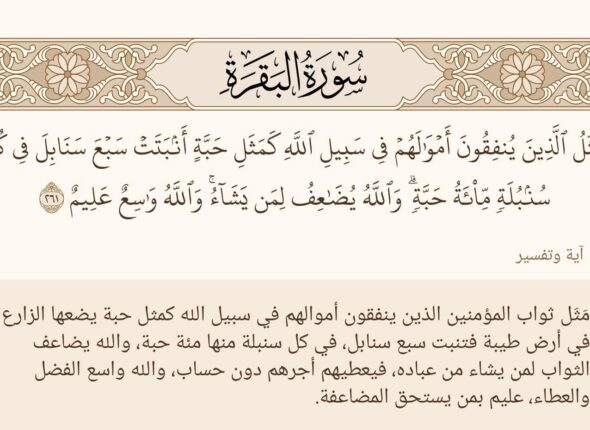 سُورَةُ البَقَرَةِ
ثَلُ ٱلَّذِينَ يُنفِقُونَ أَمۡوَٰلَهُمۡ فِي سَبِيلِ ٱللَّهِ كَمَثَلِ حَبَّةٍ أَنۢبَتَتۡ سَبۡعَ سَنَابِلَ فِي كُ
سُنۢبُلَةٖ مِّاْئَةُ حَبَّةٖۗ وَٱللَّهُ يُضَٰعِفُ لِمَن يَشَآءُۚ وَٱللَّهُ وَٰسِعٌ عَلِيمٌ ٢٦١
آية وتفسير
مَثَل ثواب المؤمنين الذين ينفقون أموالهم في سبيل الله كمثل حبة يضعها الزارع
في أرض طيبة فتنبت سبع سنابل، في كل سنبلة منها مئة حبة، والله يضاعف
الثواب لمن يشاء من عباده، فيعطيهم أجرهم دون حساب، والله واسع الفضل
والعطاء، عليم بمن يستحق المضاعفة.